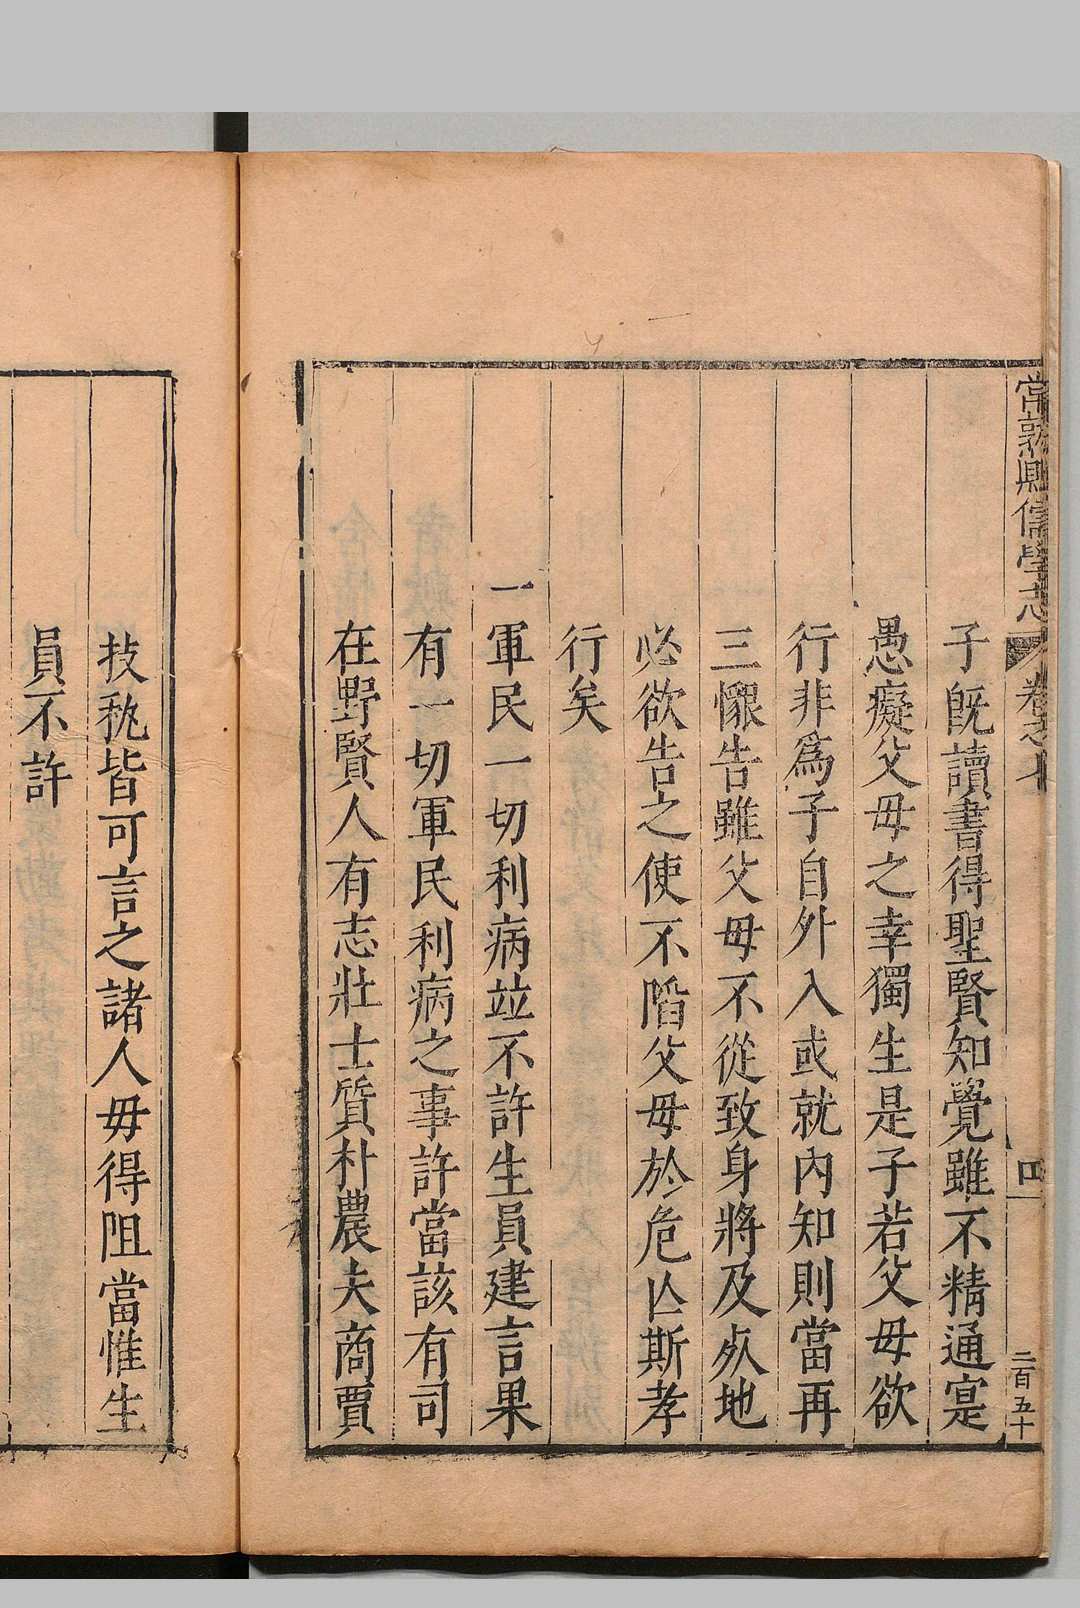 常熟縣儒學志
卷之七
四
二百五十
子既讀書得聖賢知覺雖不精通寔
愚癡父母之幸獨生是子若父母欲
行非爲子自外入或就內知則當再
三懷告雖父母不從致身將及𣦸地
必欲告之使不陷父母於危亾斯孝
行矣
一軍民一切利病竝不許生員建言果
有一切軍民利病之事許當該有司
在野賢人有志壯士質朴農夫商賈
技秇皆可言之諸人毋得阻當惟生
員不許